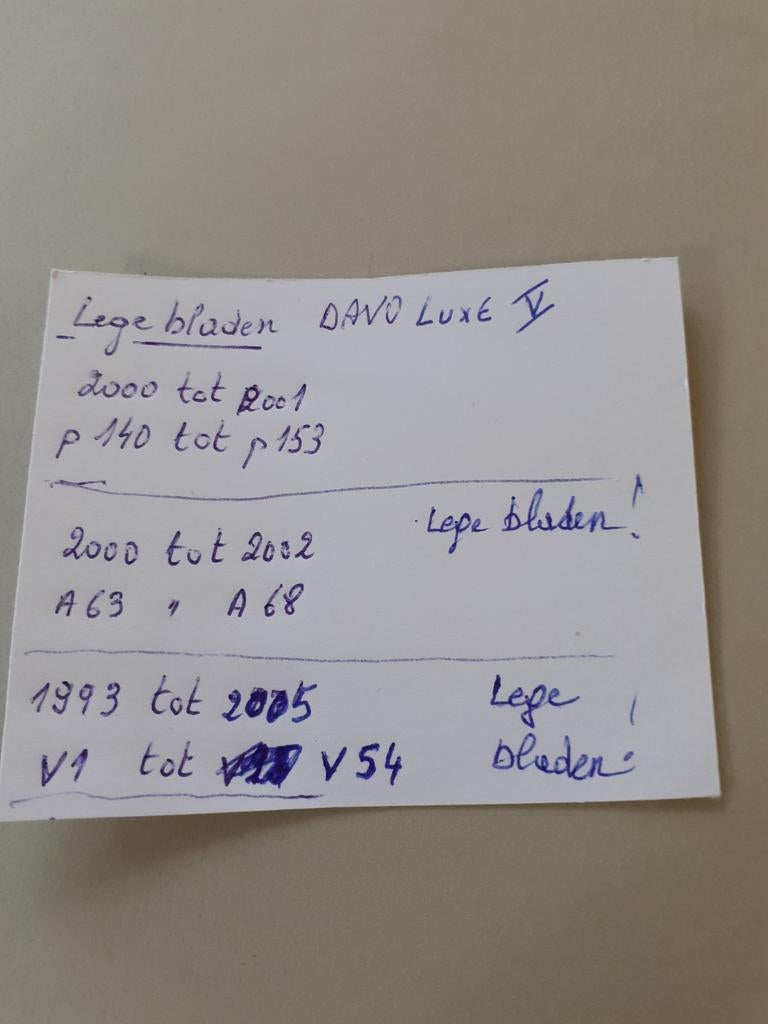 Lege bladen DAVO LUXE V
2000 tot 2001
p 140 tot p 153
Lege bladen!
2000 tot 2002
A 63 " A 68
1993 tot 2005 Lege
V1 tot V 54 bladen!